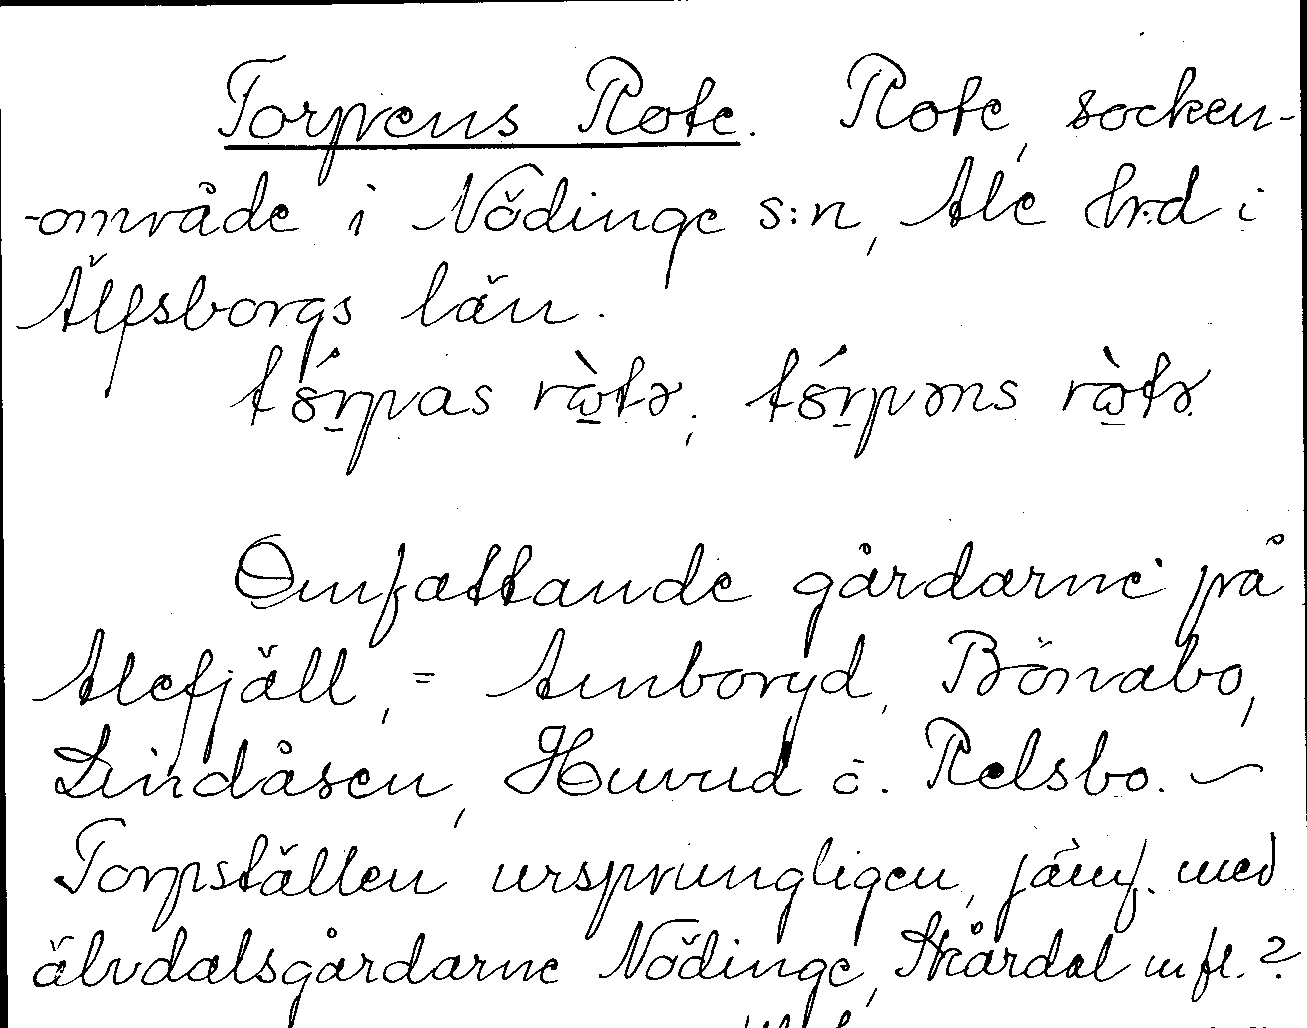 Torpens Rote. Rote, socken-
-område i Nödinge s:n, Ale hrd i
Älfsborgs län.
tórpas rὰtə; tórpəns rὰtə.
Omfattande gårdarne på
Alefjäll, = Amboryd, Bönabo,
Lindåsen, Huvud o. Relsbo. –
Torpställen ursprungligen, jämf. med
älvdalsgårdarne Nödinge, Skårdal m fl.?